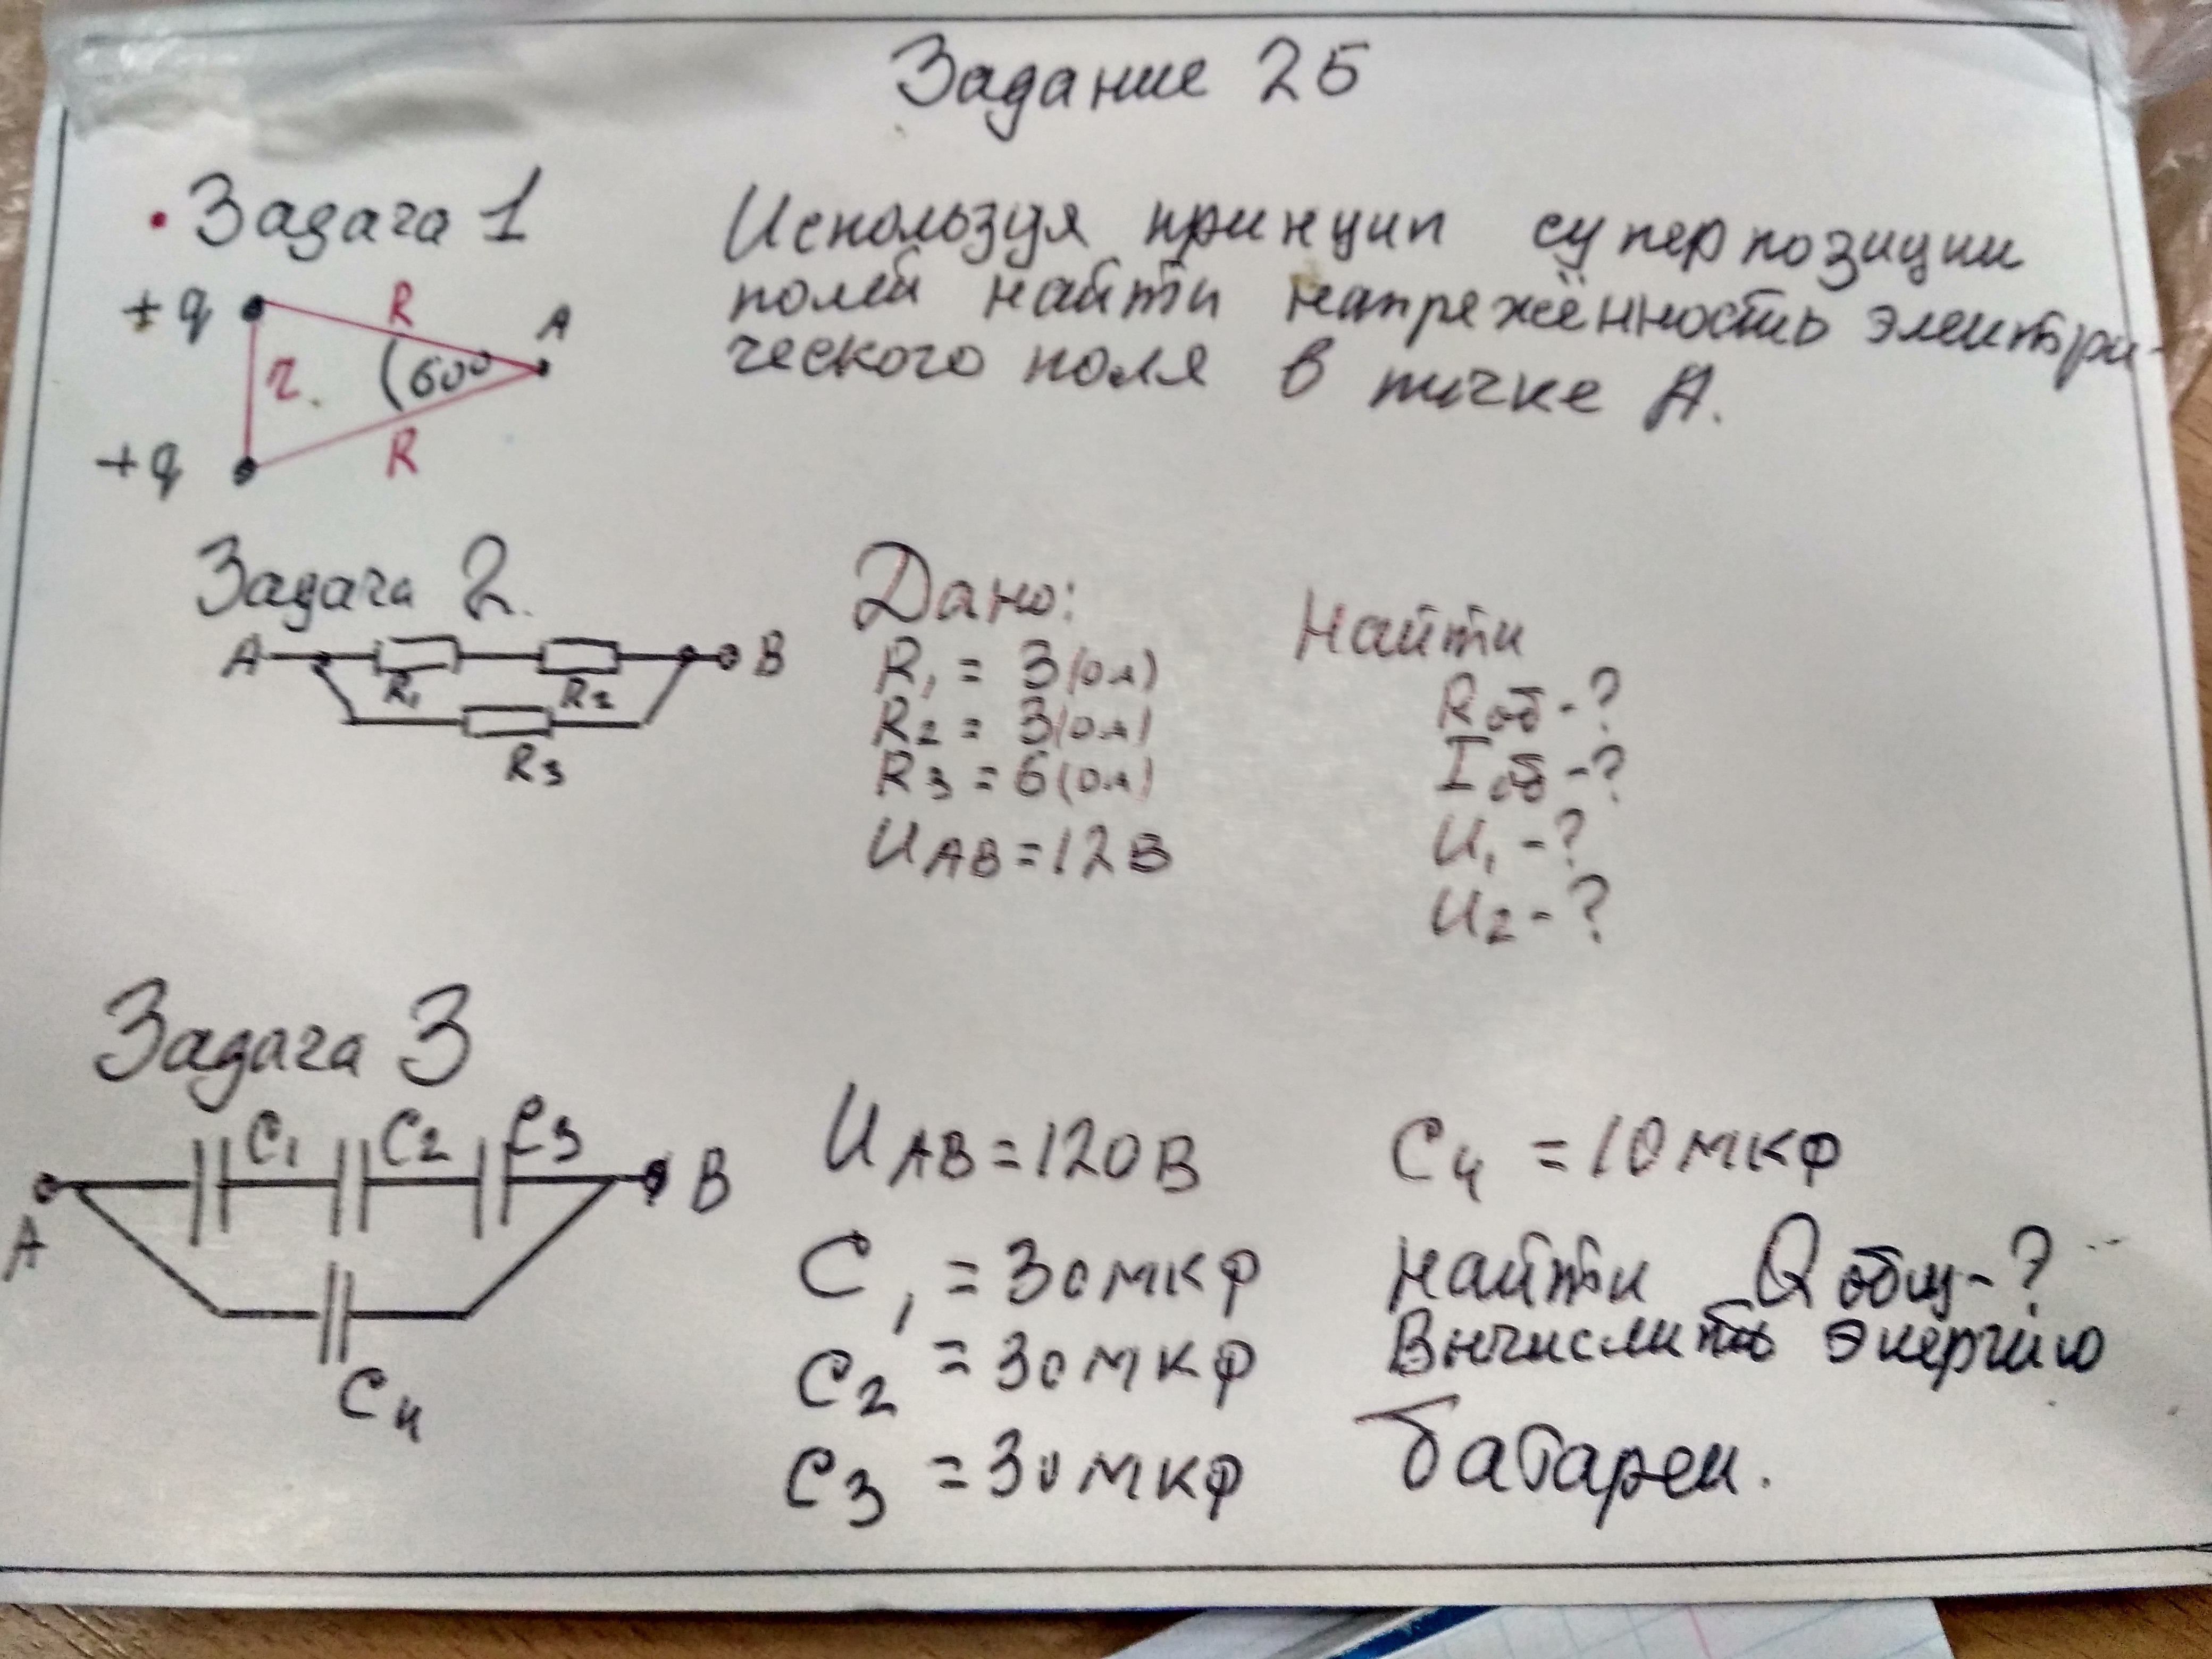 Задание 25
Задача 1
+q
R
A
r.
60°
R
+q
Используя принцип суперпозиции
полей найти напряжённость электри-
ческого поля в точке А.
Задача 2.
A
R1
R2
B
R3
Дано:
R1 = 3 (Ом)
R2 = 3 (Ом)
R3 = 6 (Ом)
UАВ = 12 В
Найти
Rоб - ?
Iоб - ?
U1 - ?
U2 - ?
Задача 3
C1
C2
C3
A
B
C4
UАВ = 120 В
C1 = 30 мкФ
C2 = 30 мкФ
C3 = 30 мкФ
C4 = 10 мкФ
Найти Qобщ - ?
Вычислить энергию
батареи.